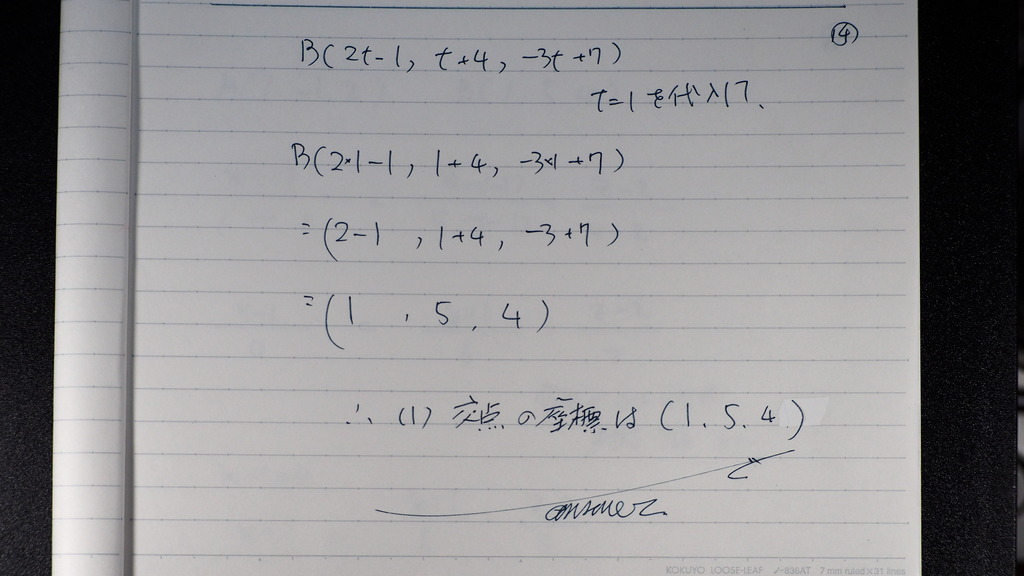 ⑭
B(2t-1, t+4, -3t+7)
t=1を代入して、
B(2×1-1, 1+4, -3×1+7)
=(2-1, 1+4, -3+7)
=(1, 5, 4)
∴(1)交点の座標は(1, 5, 4)
answer
KOKUYO LOOSE-LEAF ノ-836AT 7 mm ruled×31 lines